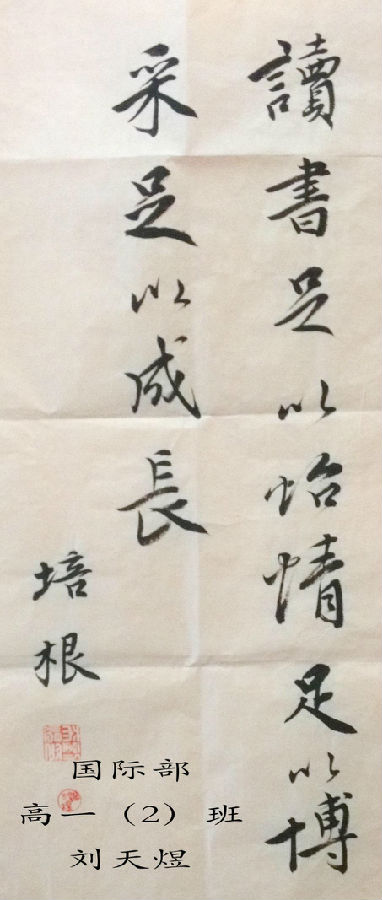 讀書足以怡情足以博
采足以成長
培根
国际部
高一（2）班
刘天煜